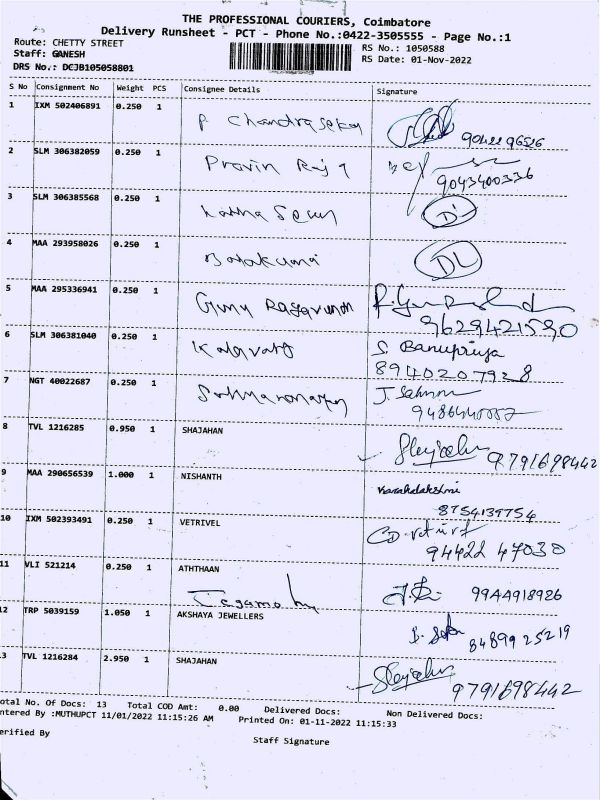 THE PROFESSIONAL COURIERS, Coimbatore
Delivery Runsheet - PCT - Phone No.:0422-3505555 - Page No.:1
Route: CHETTY STREET
RS No.: 1050588
Staff: GANESH
RS Date: 01-Nov-2022
DRS No.: DCJB105058801
S No Consignment No Weight PCS Consignee Details Signature
1 IXM 502406891 0.250 1 P Chandrasekar
2 SLM 306382059 0.250 1 Pravin Raj 9043400336
3 SLM 306385568 0.250 1
4 MAA 293958026 0.250 1 DL
5 MAA 295336941 0.250 1 Guru 9629421590
6 SLM 306381040 0.250 1 S. Banupriya
8940207928
7 NGT 40022687 0.250 1
8 TVL 1216285 0.950 1 SHAJAHAN 9791698442
9 MAA 290656539 1.000 1 NISHANTH
8754139754
10 IXM 502393491 0.250 1 VETRIVEL
94422 47030
11 VLI 521214 0.250 1 ATHTHAAN 9944918926
12 TRP 5039159 1.050 1 AKSHAYA JEWELLERS 8489925219
13 TVL 1216284 2.950 1 SHAJAHAN 9791698442
otal No. Of Docs: 13 Total COD Amt: 0.00 Delivered Docs: Non Delivered Docs:
ntered By :MUTHUPCT 11/01/2022 11:15:26 AM Printed On: 01-11-2022 11:15:33
erified By
Staff Signature